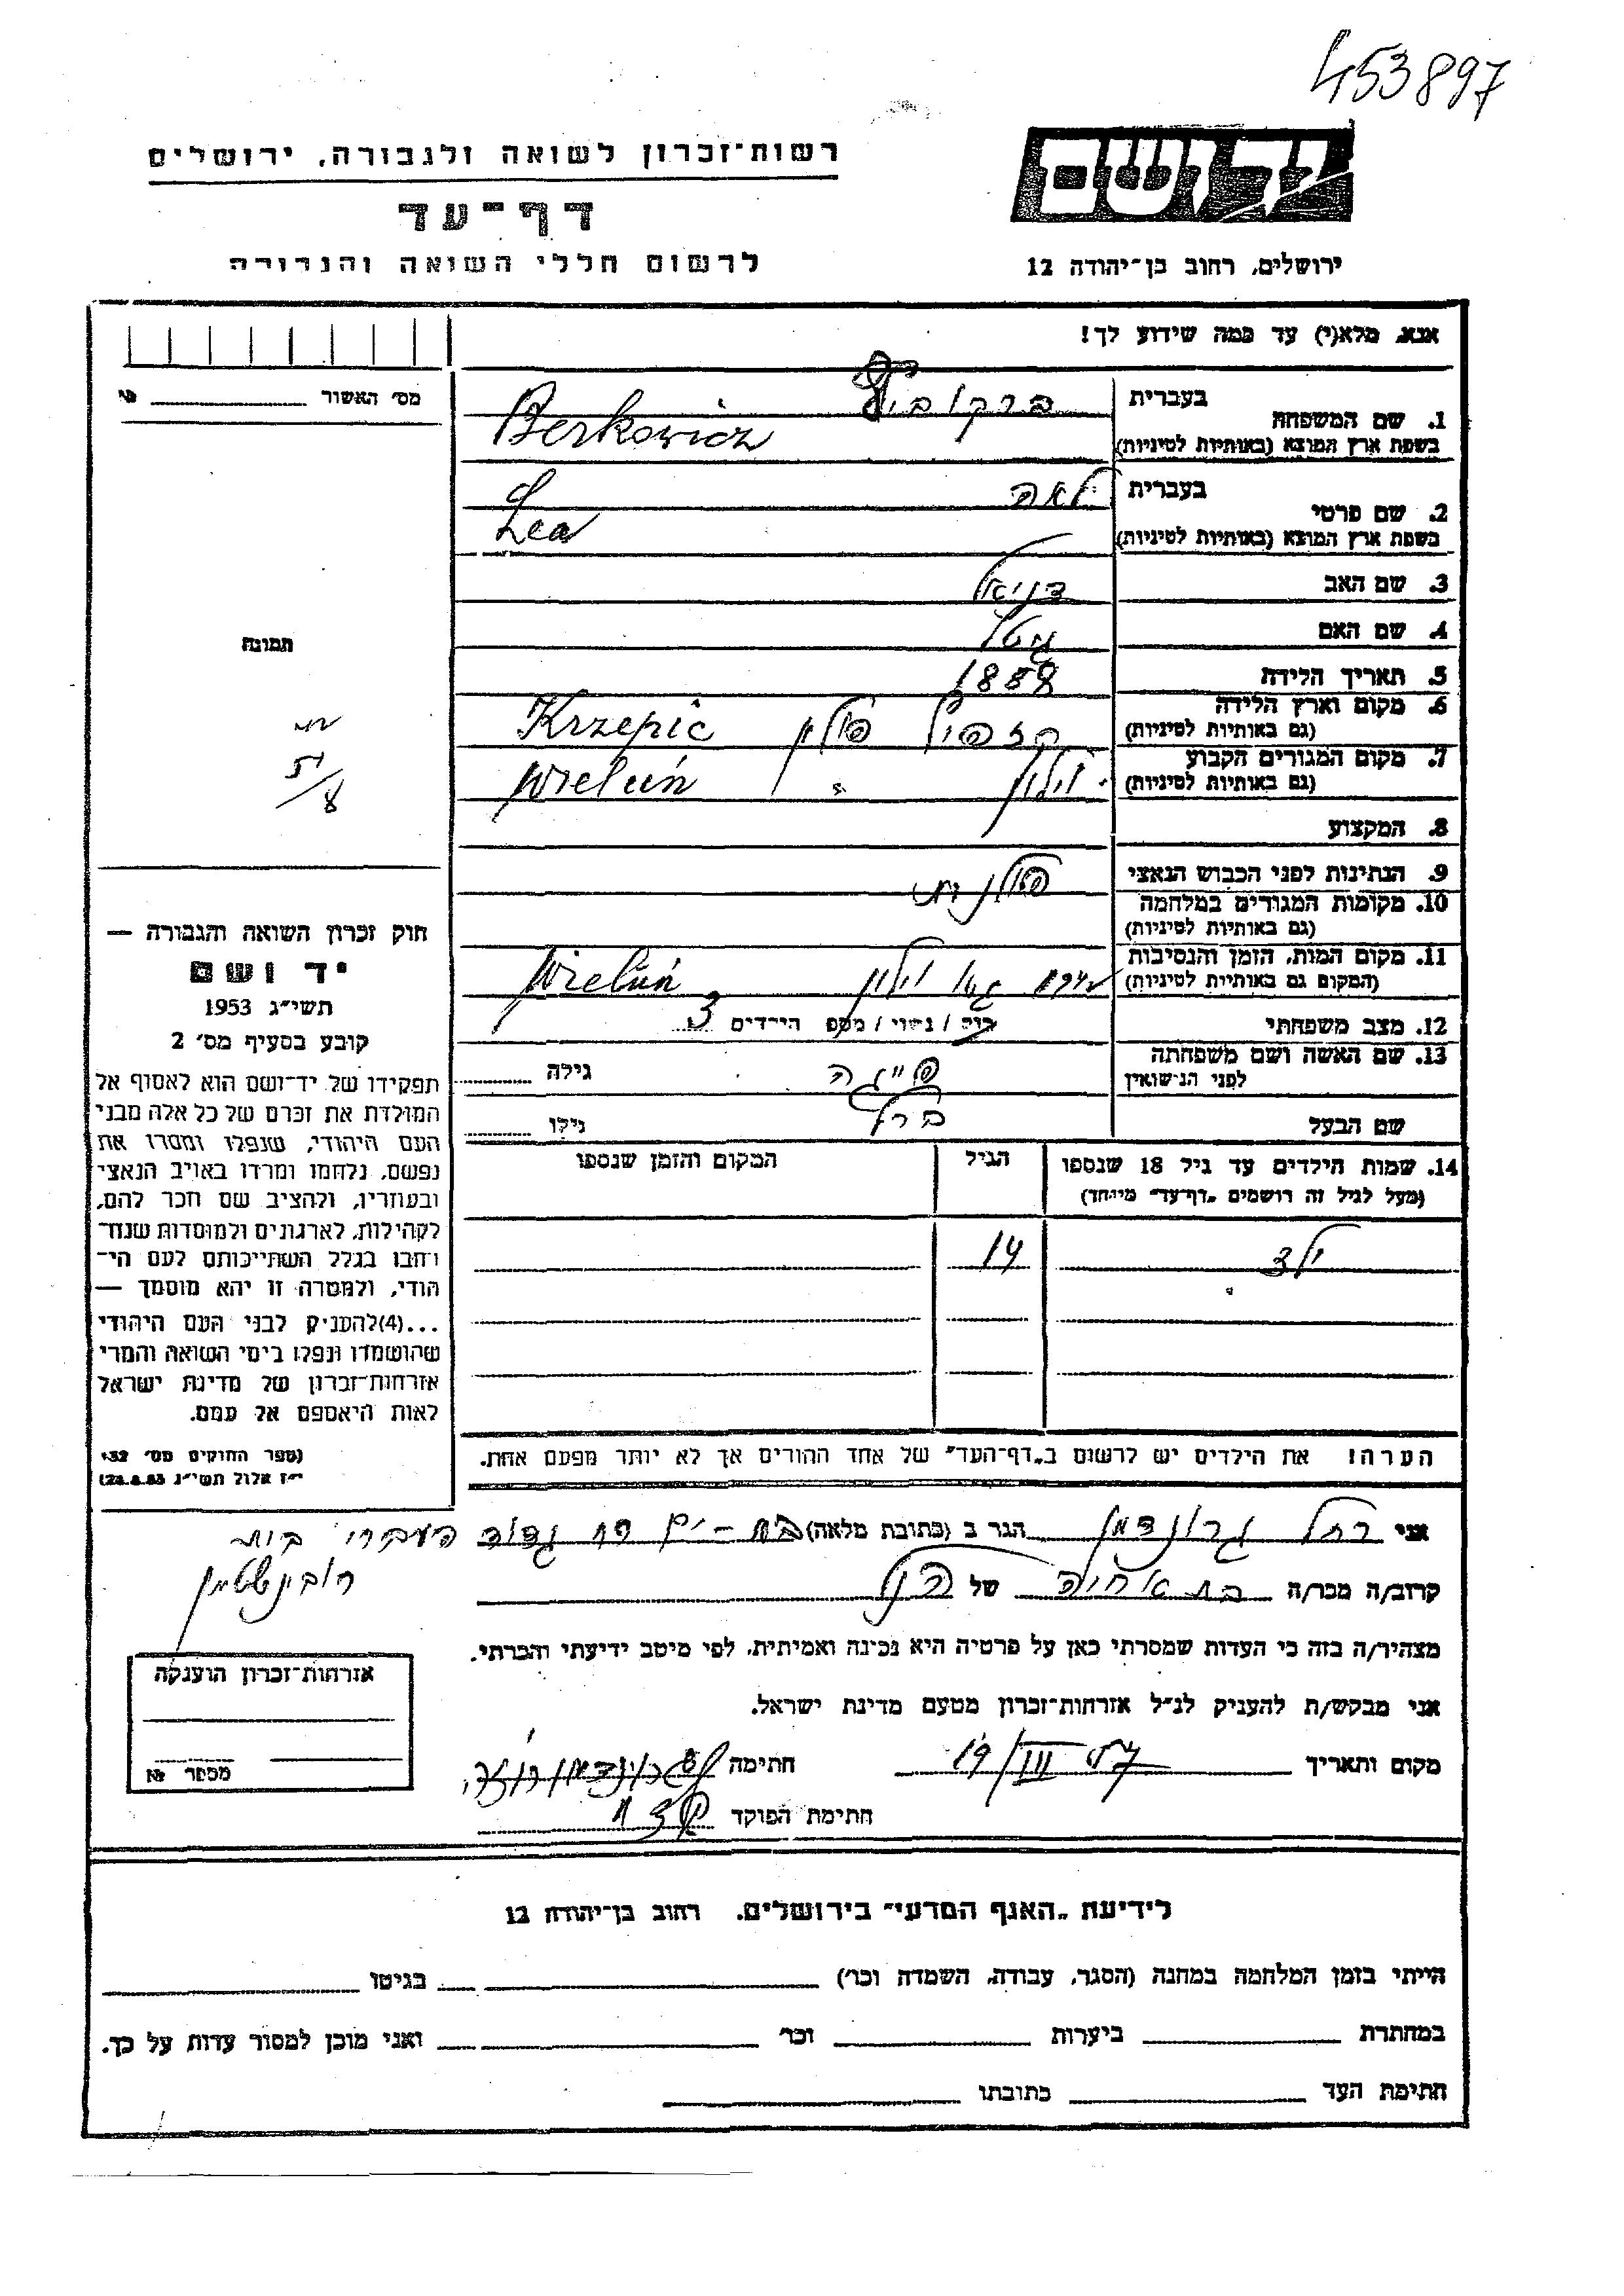 453897
יד ושם
ירושלים, רחוב בן־יהודה 12
רשות־זכרון לשואה ולגבורה, ירושלים
דף־עד
לרשום חללי השואה והגבורה
אנא, מלא(י) עד כמה שידוע לך!
מס' האשור №
1. שם המשפחה בעברית ברקוביץ
בשפת ארץ המוצא (באותיות לטיניות) Berkowicz
2. שם פרטי בעברית לאה
בשפת ארץ המוצא (באותיות לטיניות) Lea
3. שם האב דניאל
4. שם האם גיטל
תמונה
5. תאריך הלידה 1888
6. מקום וארץ הלידה
(גם באותיות לטיניות) פולין Krzepic
7. מקום המגורים הקבוע
(גם באותיות לטיניות) וילון " Wieluń
8. המקצוע
9. הנתינות לפני הכבוש הנאצי פולנית
10. מקומות המגורים במלחמה
(גם באותיות לטיניות)
11. מקום המות, הזמן והנסיבות
(המקום גם באותיות לטיניות) גטו וילון Wieluń
12. מצב משפחתי רוק / נשוי / מספ הילדים 3
13. שם האשה ושם משפחתה
לפני הנישואין גילה
שם הבעל ברל גילו
14. שמות הילדים עד גיל 18 שנספו
(מעל לגיל זה רושמים „דף־עד" מיוחד)
הגיל
המקום והזמן שנספו
ילד 14
הערה: את הילדים יש לרשום ב„דף־העד" של אחד ההורים אך לא יותר מפעם אחת.
חוק זכרון השואה והגבורה —
יד ושם
תשי"ג 1953
קובע בסעיף מס' 2
תפקידו של יד־ושם הוא לאסוף אל
המולדת את זכרם של כל אלה מבני
העם היהודי, שנפלו ומסרו את
נפשם, נלחמו ומרדו באויב הנאצי
ובעוזריו, ולהציב שם וזכר להם,
לקהילות, לארגונים ולמוסדות שנח־
רבו בגלל השתייכותם לעם הי־
הודי, ולמטרה זו יהא מוסמך —
...(4)להעניק לבני העם היהודי
שהושמדו ונפלו בימי השואה והמרי
אזרחות־זכרון של מדינת ישראל
לאות היאספם אל עמם.
(ספר החוקים מס' 132
י"ז אלול תשי"ג 28.8.53)
אני רחל גרונדמן הגר ב (כתובת מלאה) בת-ים רח גדוד העברי בית
רובינשטיין
קרוב/ה מכר/ה בת אחיה של הנ"ל
מצהיר/ה בזה כי העדות שמסרתי כאן על פרטיה היא נכונה ואמיתית, לפי מיטב ידיעתי והכרתי.
אני מבקש/ת להעניק לנ"ל אזרחות־זכרון מטעם מדינת ישראל.
מקום ותאריך 19/III חתימה
חתימת הפוקד
אזרחות־זכרון הוענקה
מספר №
לידיעת „האגף המדעי" בירושלים, רחוב בן־יהודה 12
הייתי בזמן המלחמה במחנה (הסגר, עבודה, השמדה וכו') בגיטו
במחתרת ביערות וכו' ואני מוכן למסור עדות על כך.
חתימת העד כתובתו